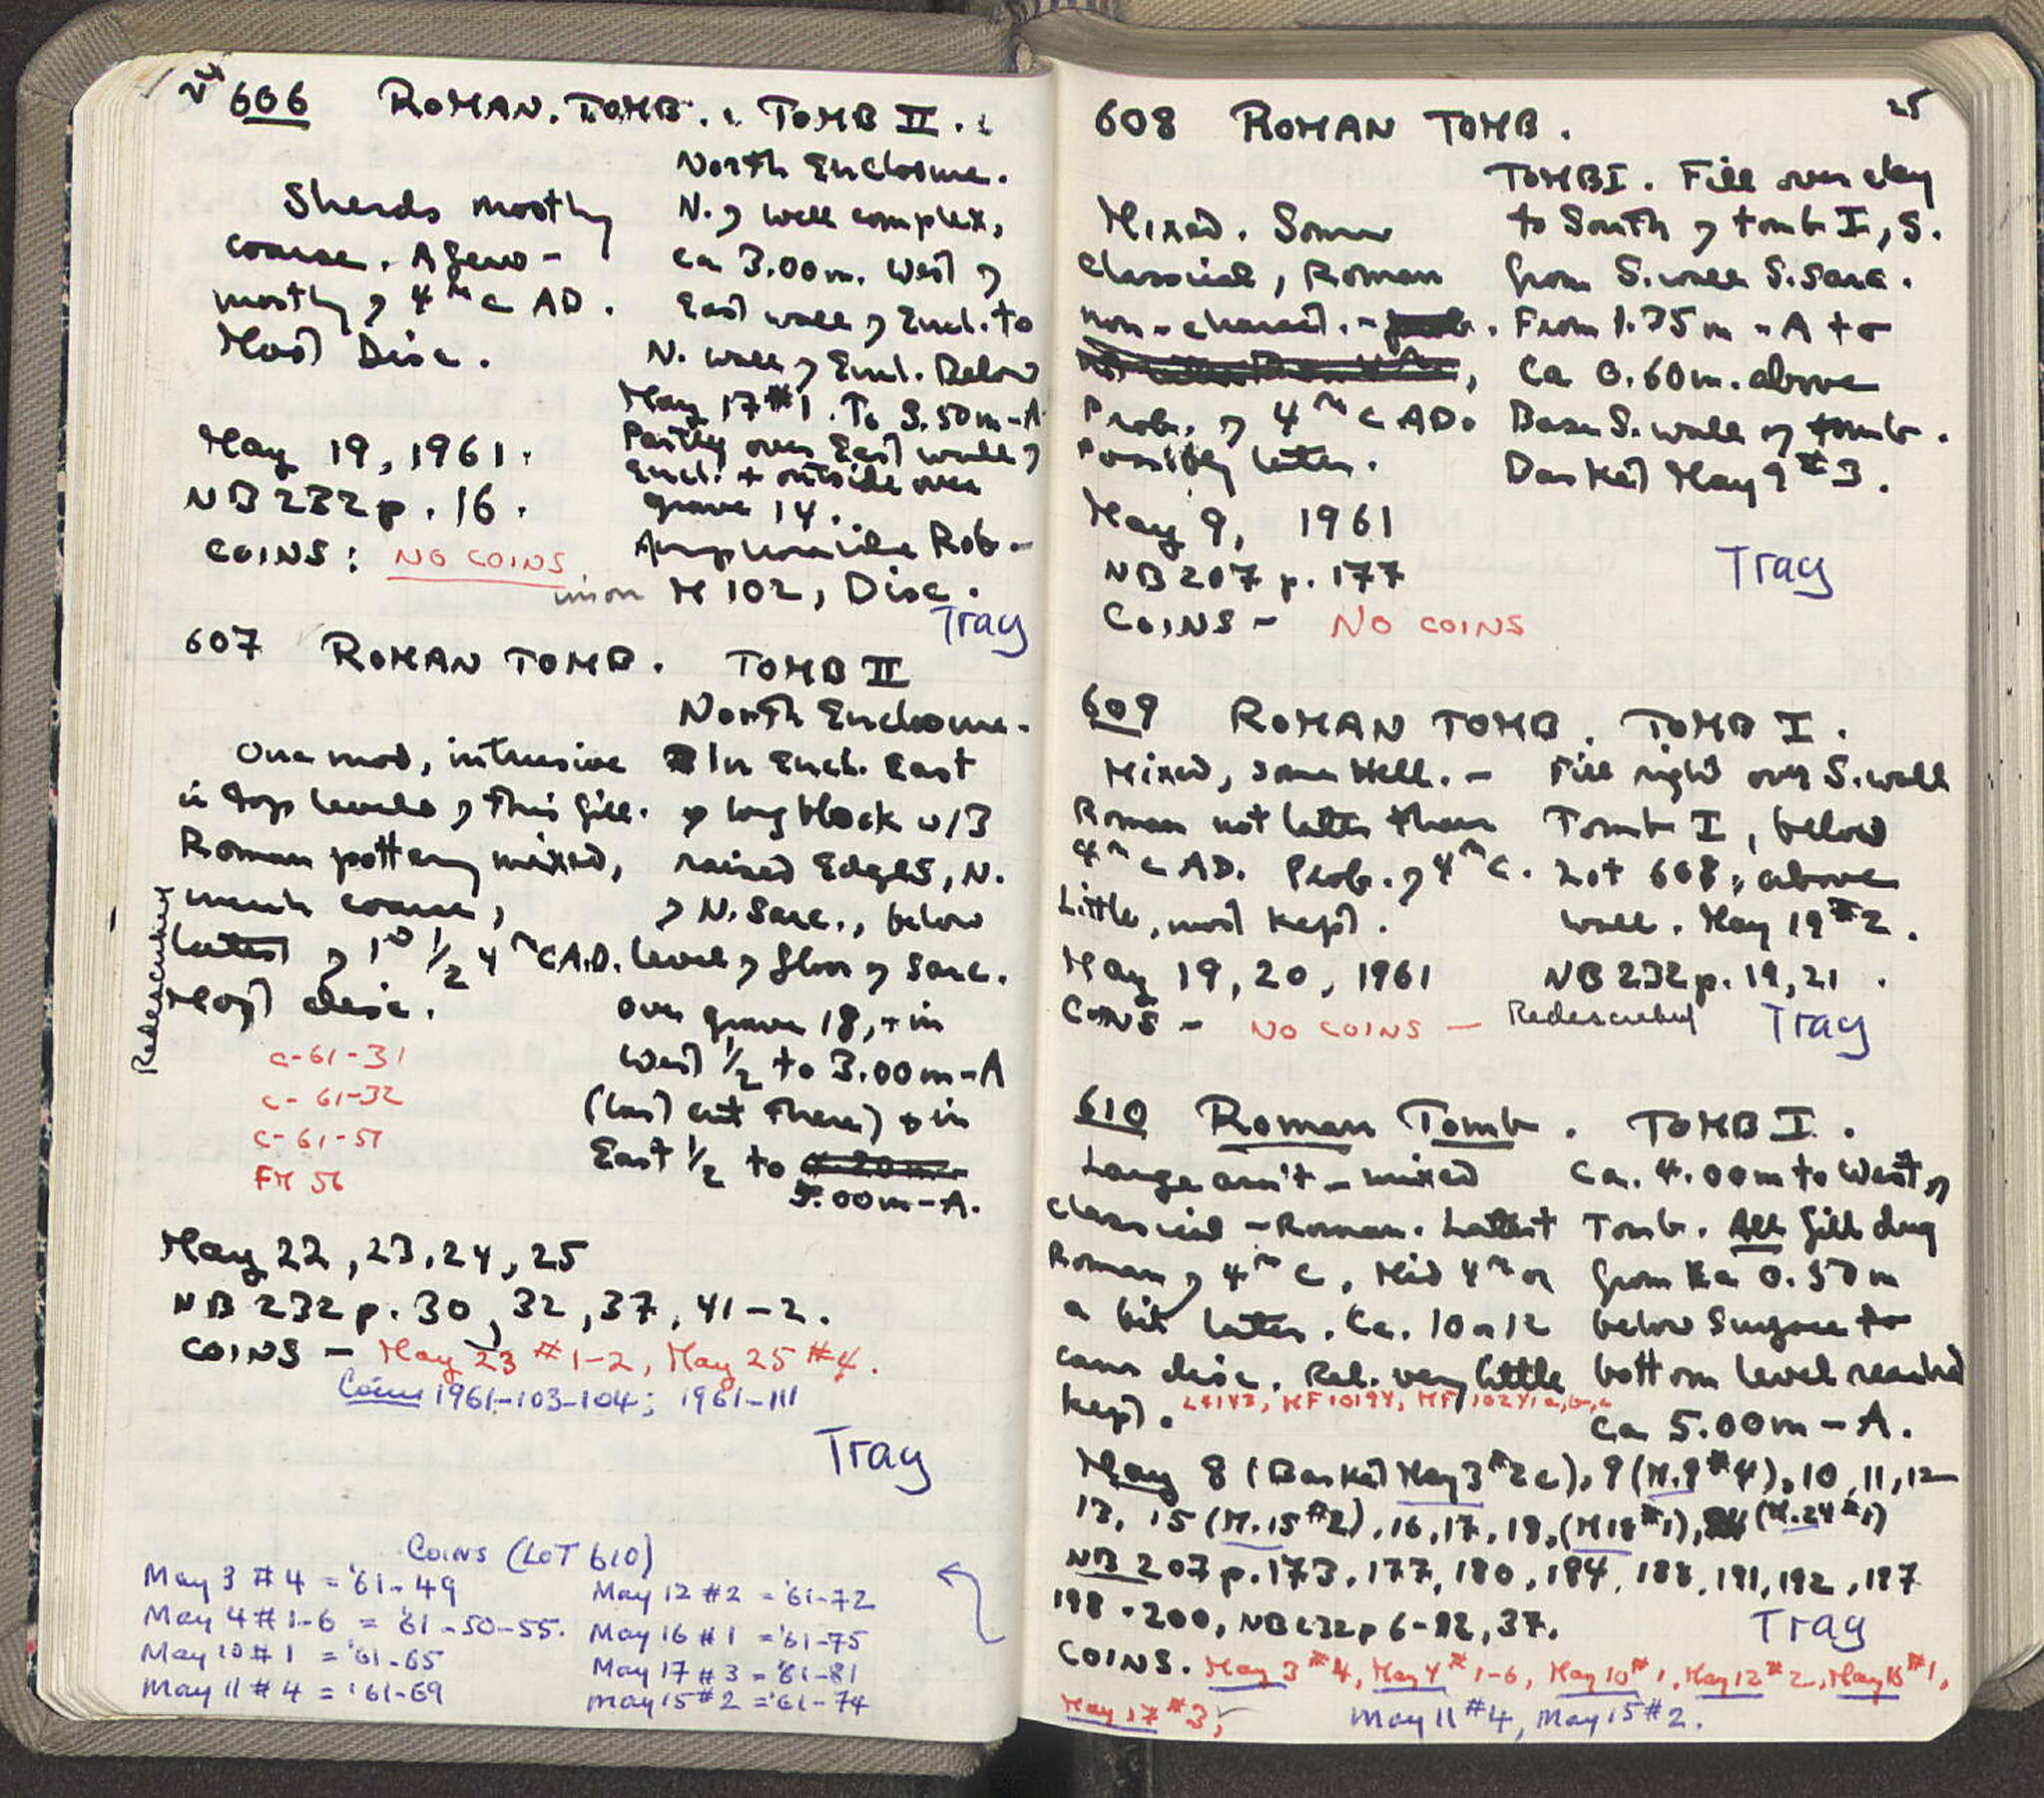 24
606 ROMAN. TOMB. TOMB II.
North Enclosure.
Sherds mostly
coarse. A few -
mostly of 4th c AD.
Most Disc.
N. of well complex,
ca 3.00m. West of
East wall of Encl. to
N. wall of Encl. Below
May 17 #1. To 3.50m-A
Partly over East wall of
Encl. + outside over
grave 14.
May 19, 1961.
NB 232 p. 16.
COINS: NO COINS
Amphora like Rob-
inson M 102, Disc.
Tray
607 ROMAN TOMB. TOMB II
North Enclosure.
One mod, intrusive
in top levels of this fill.
Roman pottery mixed,
much coarse,
latest of 1st 1/2 4th C A.D.
Most disc.
Redescribed
In Encl. East
of long block w/3
raised Edges, N.
of N. Sarc., below
level of floor of Sarc.
over grave 18, + in
West 1/2 to 3.00m-A
(last cut there) + in
East 1/2 to
3.00m-A.
C-61-31
C-61-32
C-61-51
FM 56
May 22, 23, 24, 25
NB 232 p. 30, 32, 37, 41-2.
COINS - May 23 #1-2, May 25 #4.
Coins 1961-103-104; 1961-111
Tray
Coins (LOT 610)
May 3 #4 = '61-49
May 4 #1-6 = '61-50-55.
May 10 #1 = '61-65
May 11 #4 = '61-69
May 12 #2 = '61-72
May 16 #1 = '61-75
May 17 #3 = '61-81
May 15 #2 = '61-74
25
608 ROMAN TOMB.
TOMB I. Fill over clay
to South of tomb I, S.
from S. wall S. Sarc.
From 1.75m-A to
ca 0.60m. above
Base S. wall of tomb.
Basket May 9 #3.
Mixed. Some
classical, Roman
non-charact. -
Prob. of 4th c AD.
Possibly later.
May 9, 1961
NB 207 p. 177
Tray
COINS - NO COINS
609 ROMAN TOMB. TOMB I.
Mixed, some Hell. -
Roman not later than
4th c AD. Prob. of 4th c.
Little, most kept.
Fill right over S. wall
Tomb I, below
Lot 608, above
wall. May 19 #2.
May 19, 20, 1961 NB 232 p. 19, 21.
COINS - NO COINS - Redescribed Tray
610 Roman Tomb. TOMB I.
Large am't - mixed
classical - Roman. Latest
Roman of 4th C, Mid 4th or
a bit later. Ca. 10 or 12
cans disc. Rel. very little
kept. MF 10194, MF 10241 a, b, c
Ca. 4.00m to West of
Tomb. All fill dug
from ca 0.50m
below surface to
bottom level reached
ca 5.00m-A.
May 8 (Basket May 3 #2c), 9 (M. 9 #4), 10, 11, 12
13, 15 (M. 15 #2), 16, 17, 18, (M 18 #1), (M. 24 #1)
NB 207 p. 173, 177, 180, 184, 188, 191, 192, 197
198-200, NB 232 p 6-12, 37.
Tray
COINS. May 3 #4, May 4 #1-6, May 10 #1, May 12 #2, May 16 #1,
May 17 #3, May 11 #4, May 15 #2.